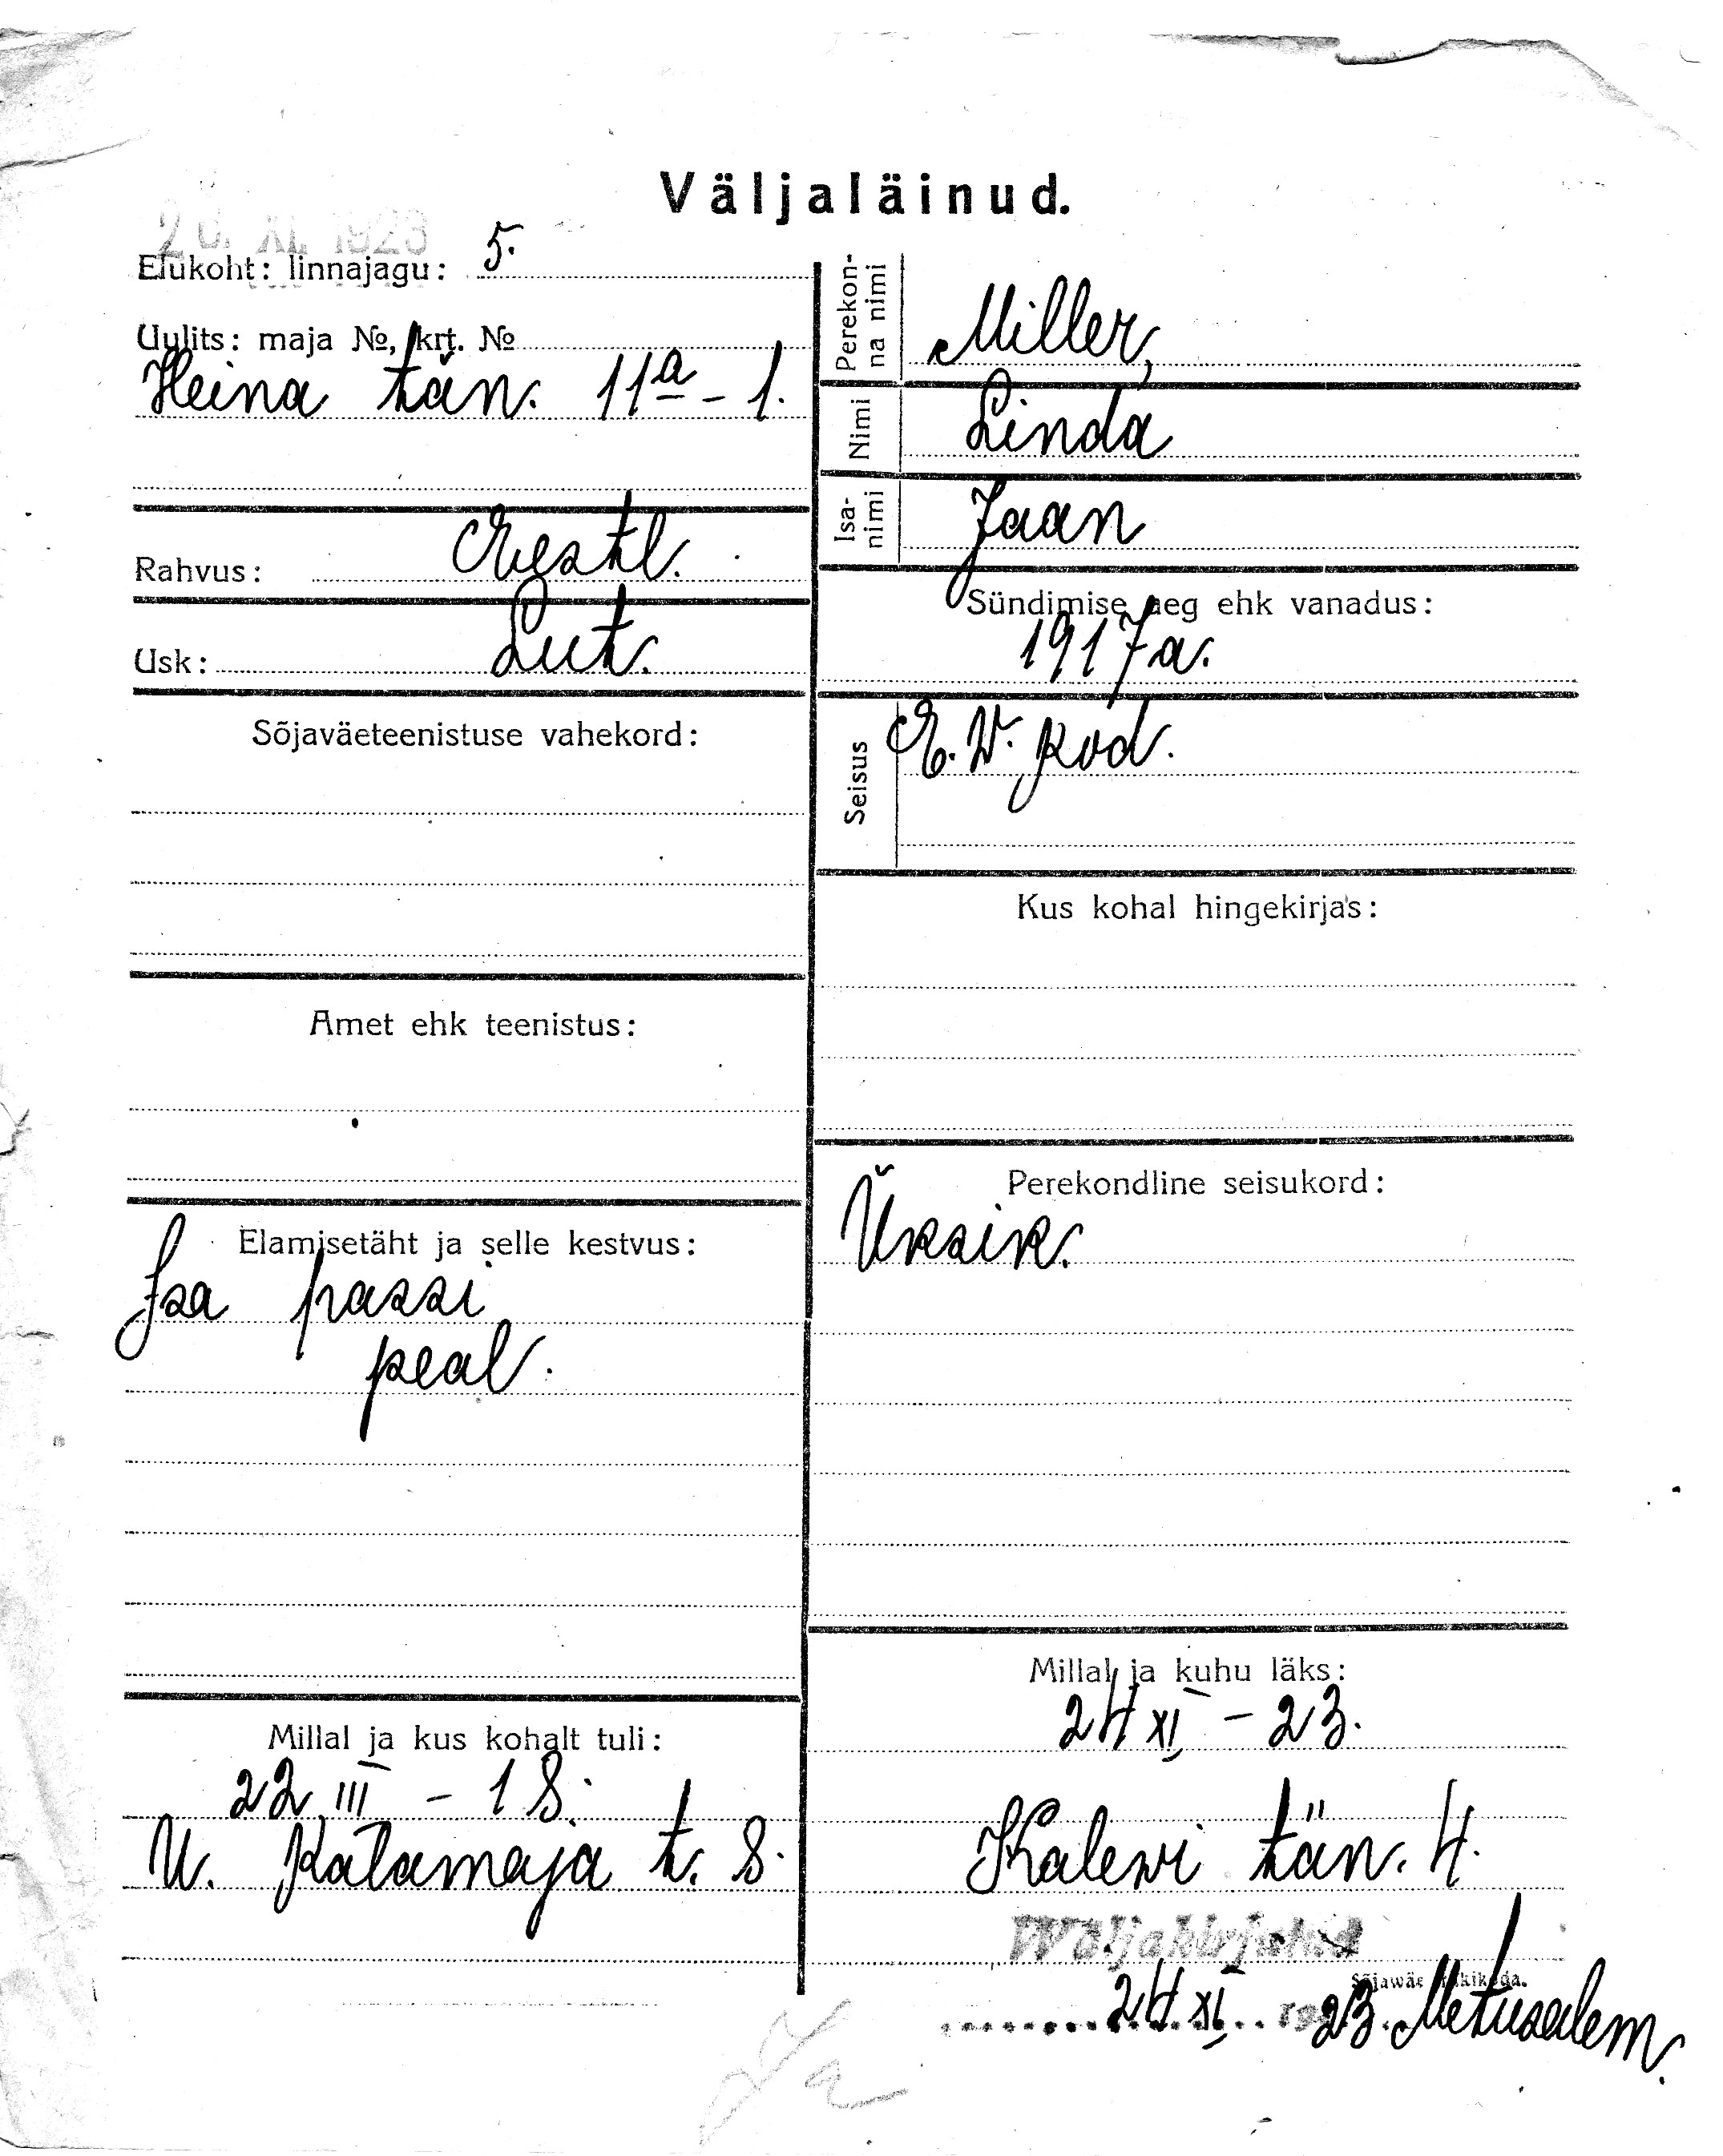 Väljaläinud.
2 XI 1923
Elukoht: linnajagu: 5.
Uulits: maja №, krt. №
Heina tän. 11a - 1.
Rahvus: Eestl.
Usk: Lut.
Sõjaväeteenistuse vahekord:
Amet ehk teenistus:
Elamisetäht ja selle kestvus:
Isa passi
peal.
Millal ja kus kohalt tuli:
22 III - 18.
U. Kalamaja t. 8.
Perekon-
na nimi
Miller,
Nimi
Linda
Isa-
nimi
Jaan
Sündimise aeg ehk vanadus:
1917 a.
Seisus
E. W. kod.
Kus kohal hingekirjas:
Perekondline seisukord:
Üksik.
Millal ja kuhu läks:
24 XI - 23.
Kalewi tän. 4.
Wäljakirjutud
Sõjawäe trükikoda.
24 XI 23. Metusalem.